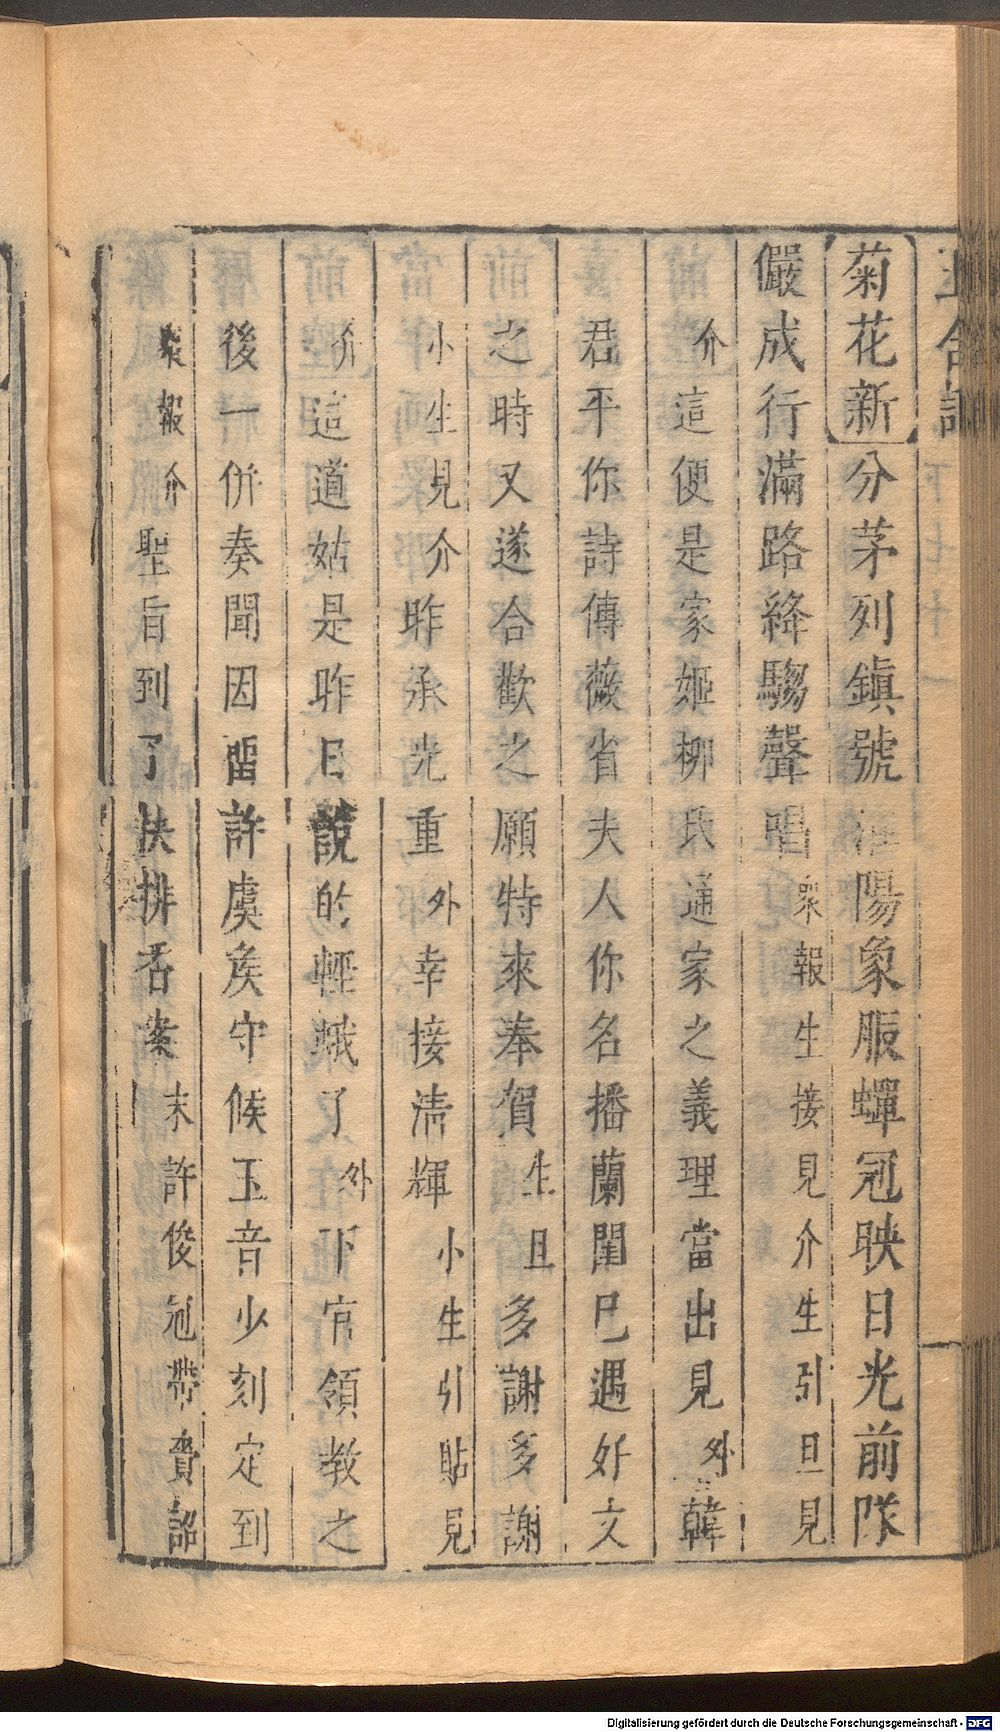 玉合記
下 七十一
菊花新 分茅列鎮號 陽象服蟬冠映日光前隊
儼成行滿路絳騶聲唱 衆報生接見介生引旦見
介 這便是家姬柳氏通家之義理當出見 外 韓
君平你詩傳薇省夫人你名播蘭閨巳遇好文
之時又遂合歡之願特來奉賀 生旦 多謝多謝
小生見介 昨承光重 外 幸接清輝 小生引貼見
介 這道姑是昨日說的輕蛾了 外 下官領教之
後一併奏聞因留許虞矦守候玉音少刻定到
衆報介 聖旨到了快排香案 末許俊冠帶賫詔
Digitalisierung gefördert durch die Deutsche Forschungsgemeinschaft - DFG